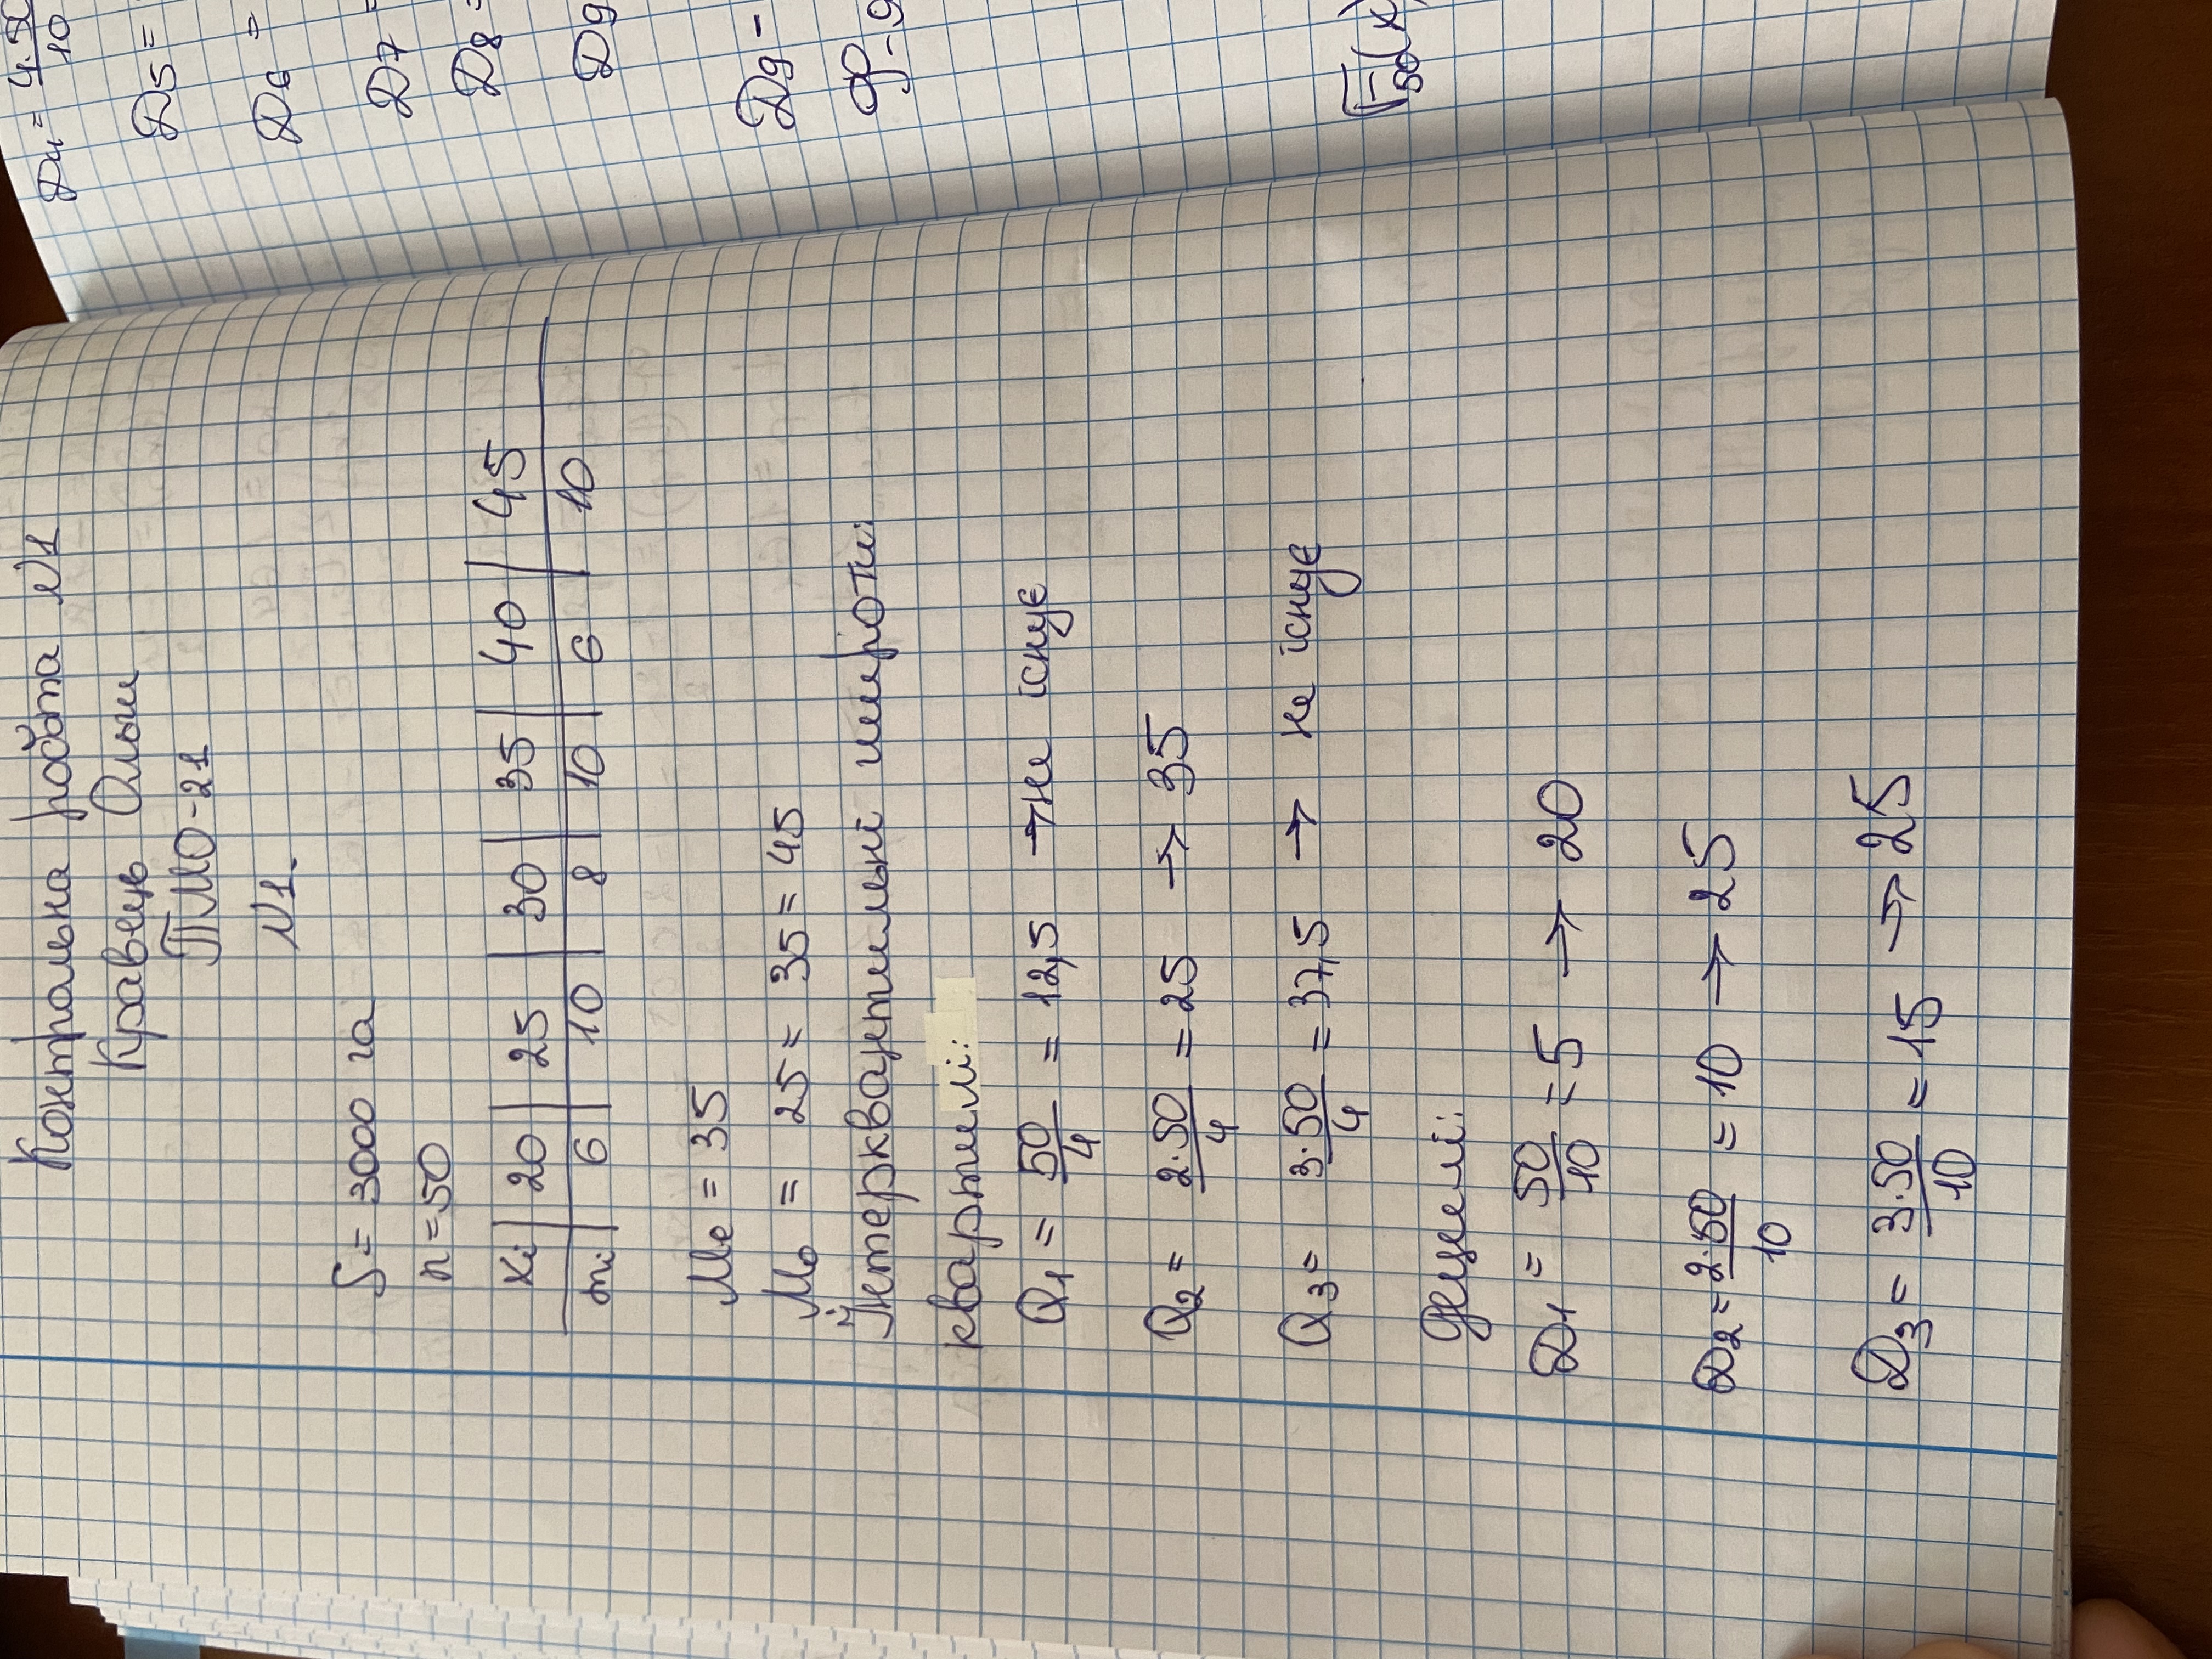 Контрольна робота №1
Кравець Ольги
ПМО-21
№1.
S = 3000 га
n = 50
xi | 20 | 25 | 30 | 35 | 40 | 45
mi | 6 | 10 | 8 | 10 | 6 | 10
Me = 35
Mo = 25 = 35 = 45
Інтерквантильні широти:
квартилі:
Q1 = 50/4 = 12,5 → не існує
Q2 = 2·50/4 = 25 → 35
Q3 = 3·50/4 = 37,5 → не існує
децилі:
D1 = 50/10 = 5 → 20
D2 = 2·50/10 = 10 → 25
D3 = 3·50/10 = 15 → 25
D4 = 4·50/10
D5 =
D6 =
D7 =
D8 =
D9
D9 -
F50(x)